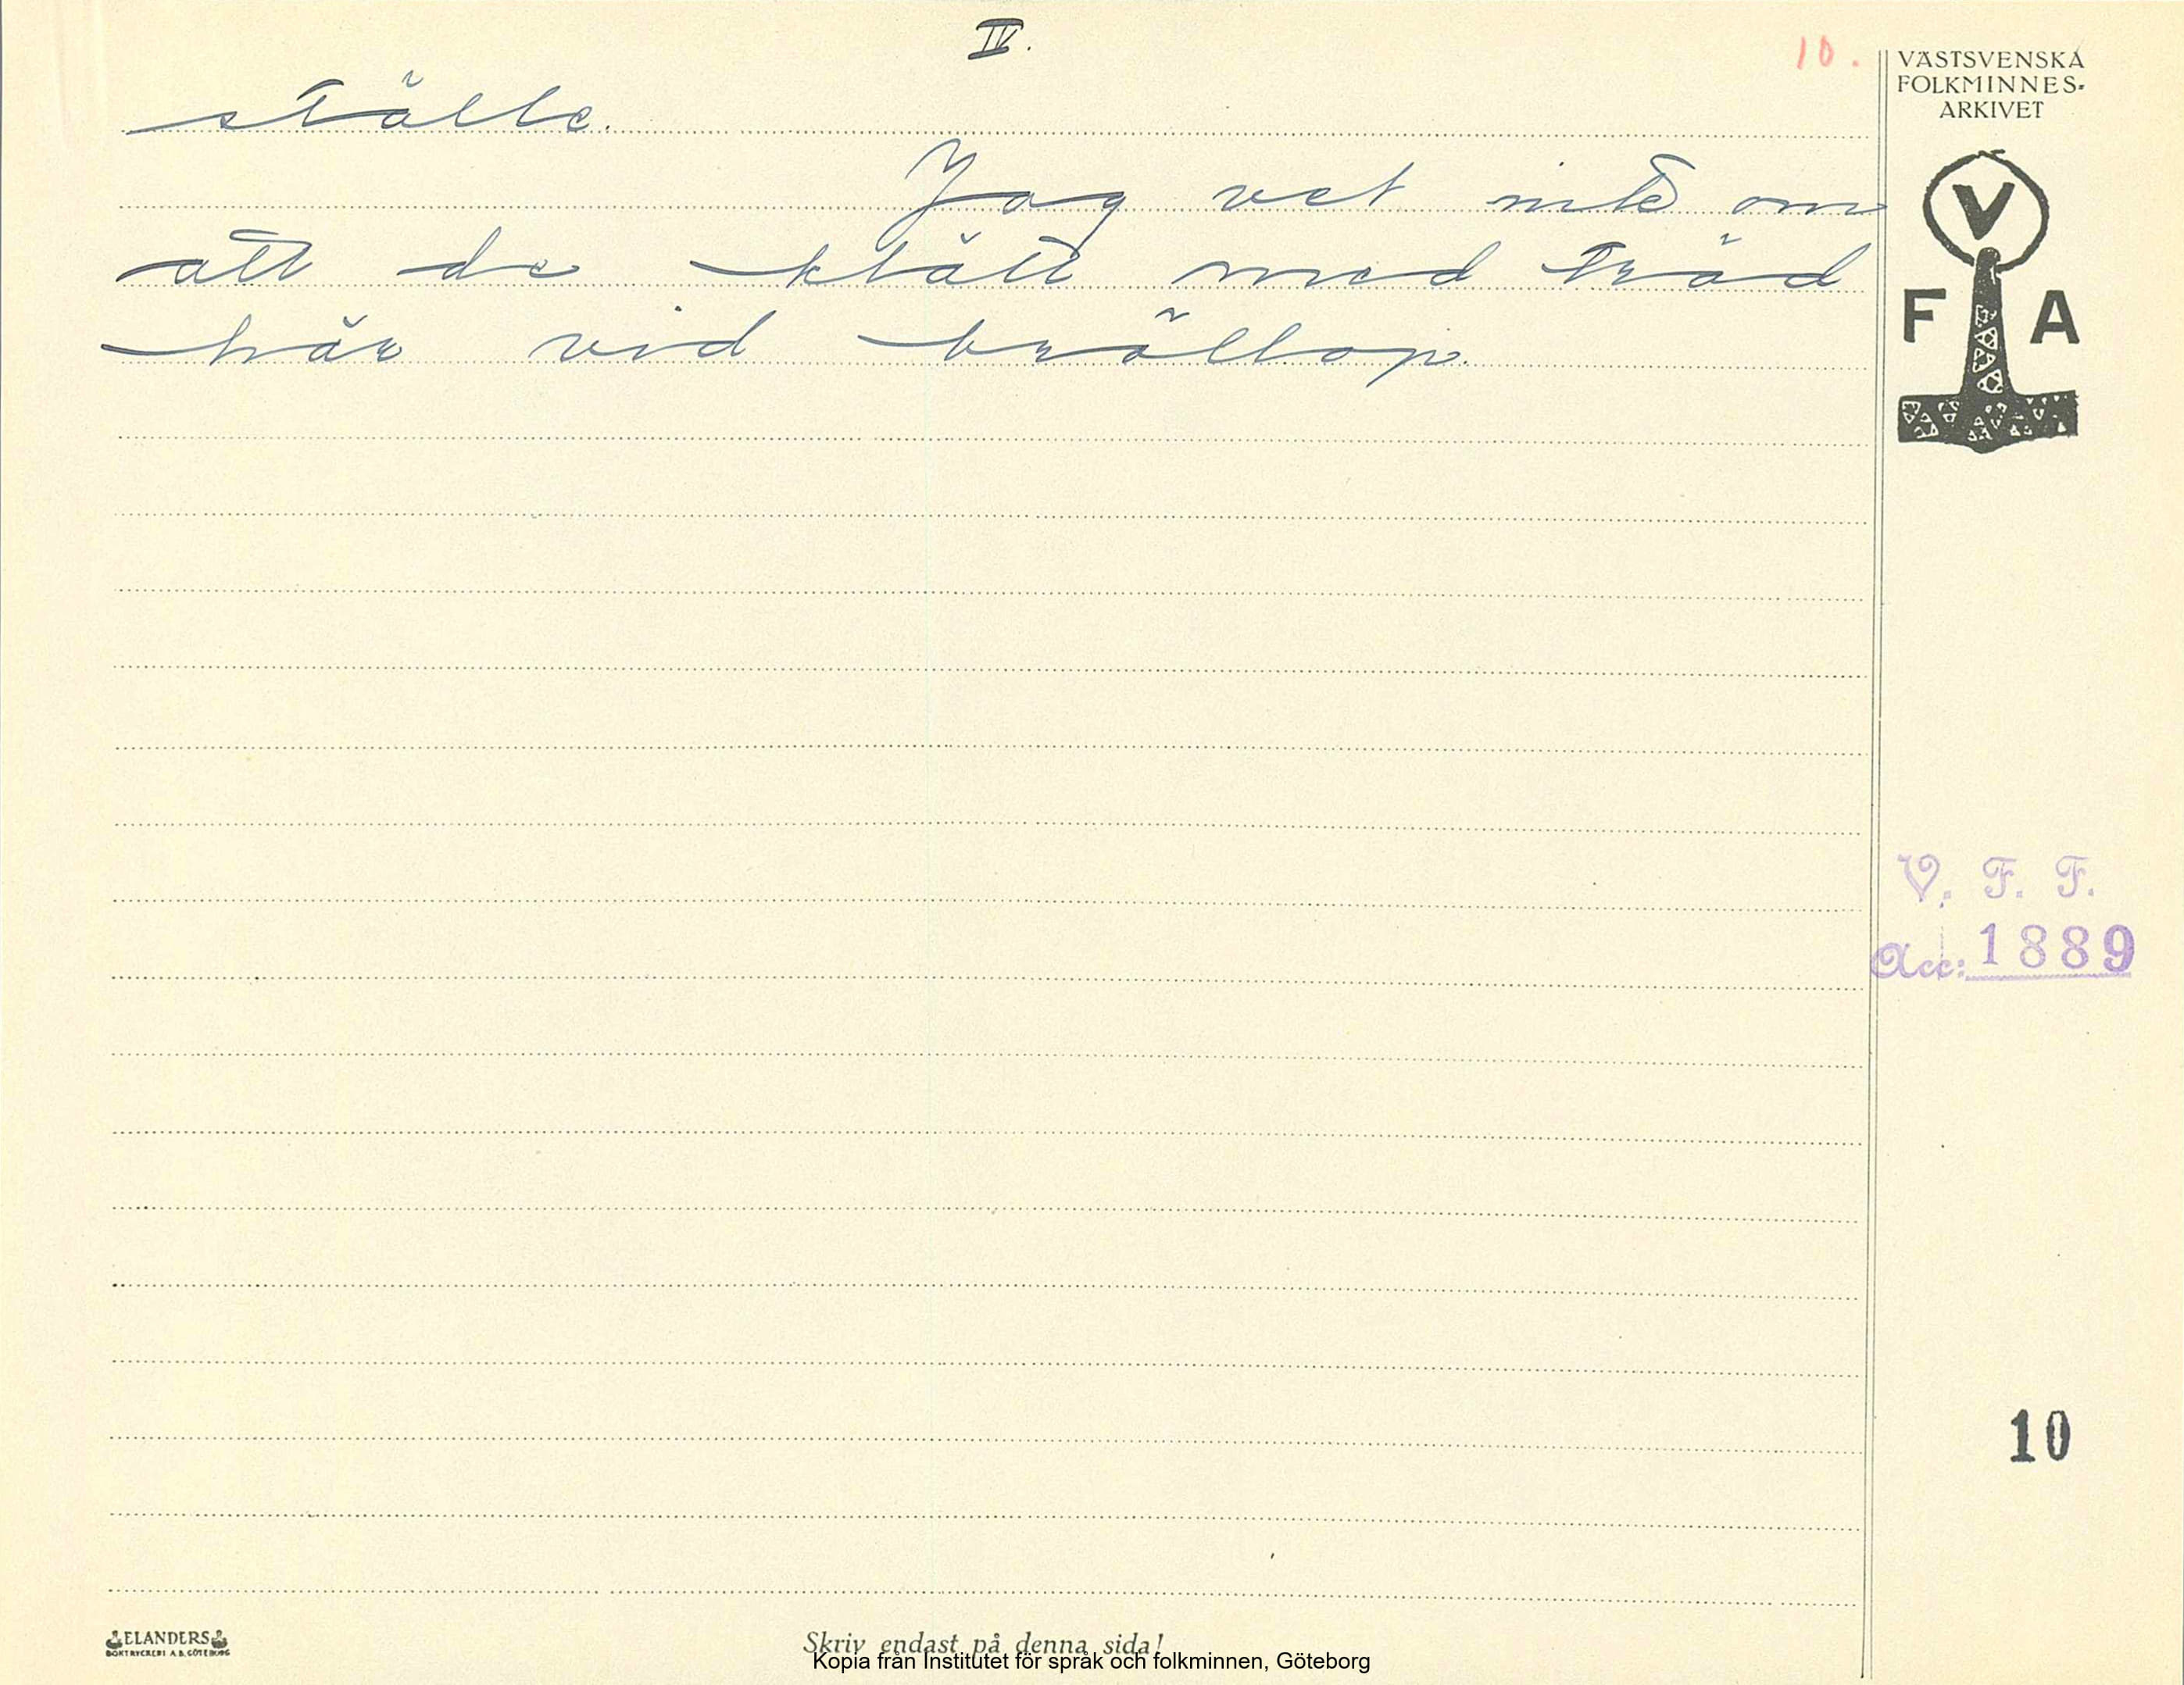 IV.
10.
VÄSTSVENSKA
FOLKMINNES-
ARKIVET
ställe.
Jag vet inte om
att de klätt med träd
här vid bröllop.
V
F A
V. F. F.
Acc: 1889
10
ELANDERS
BOKTRYCKERI A.B. GÖTEBORG
Skriv endast på denna sida!
Kopia från Institutet för språk och folkminnen, Göteborg